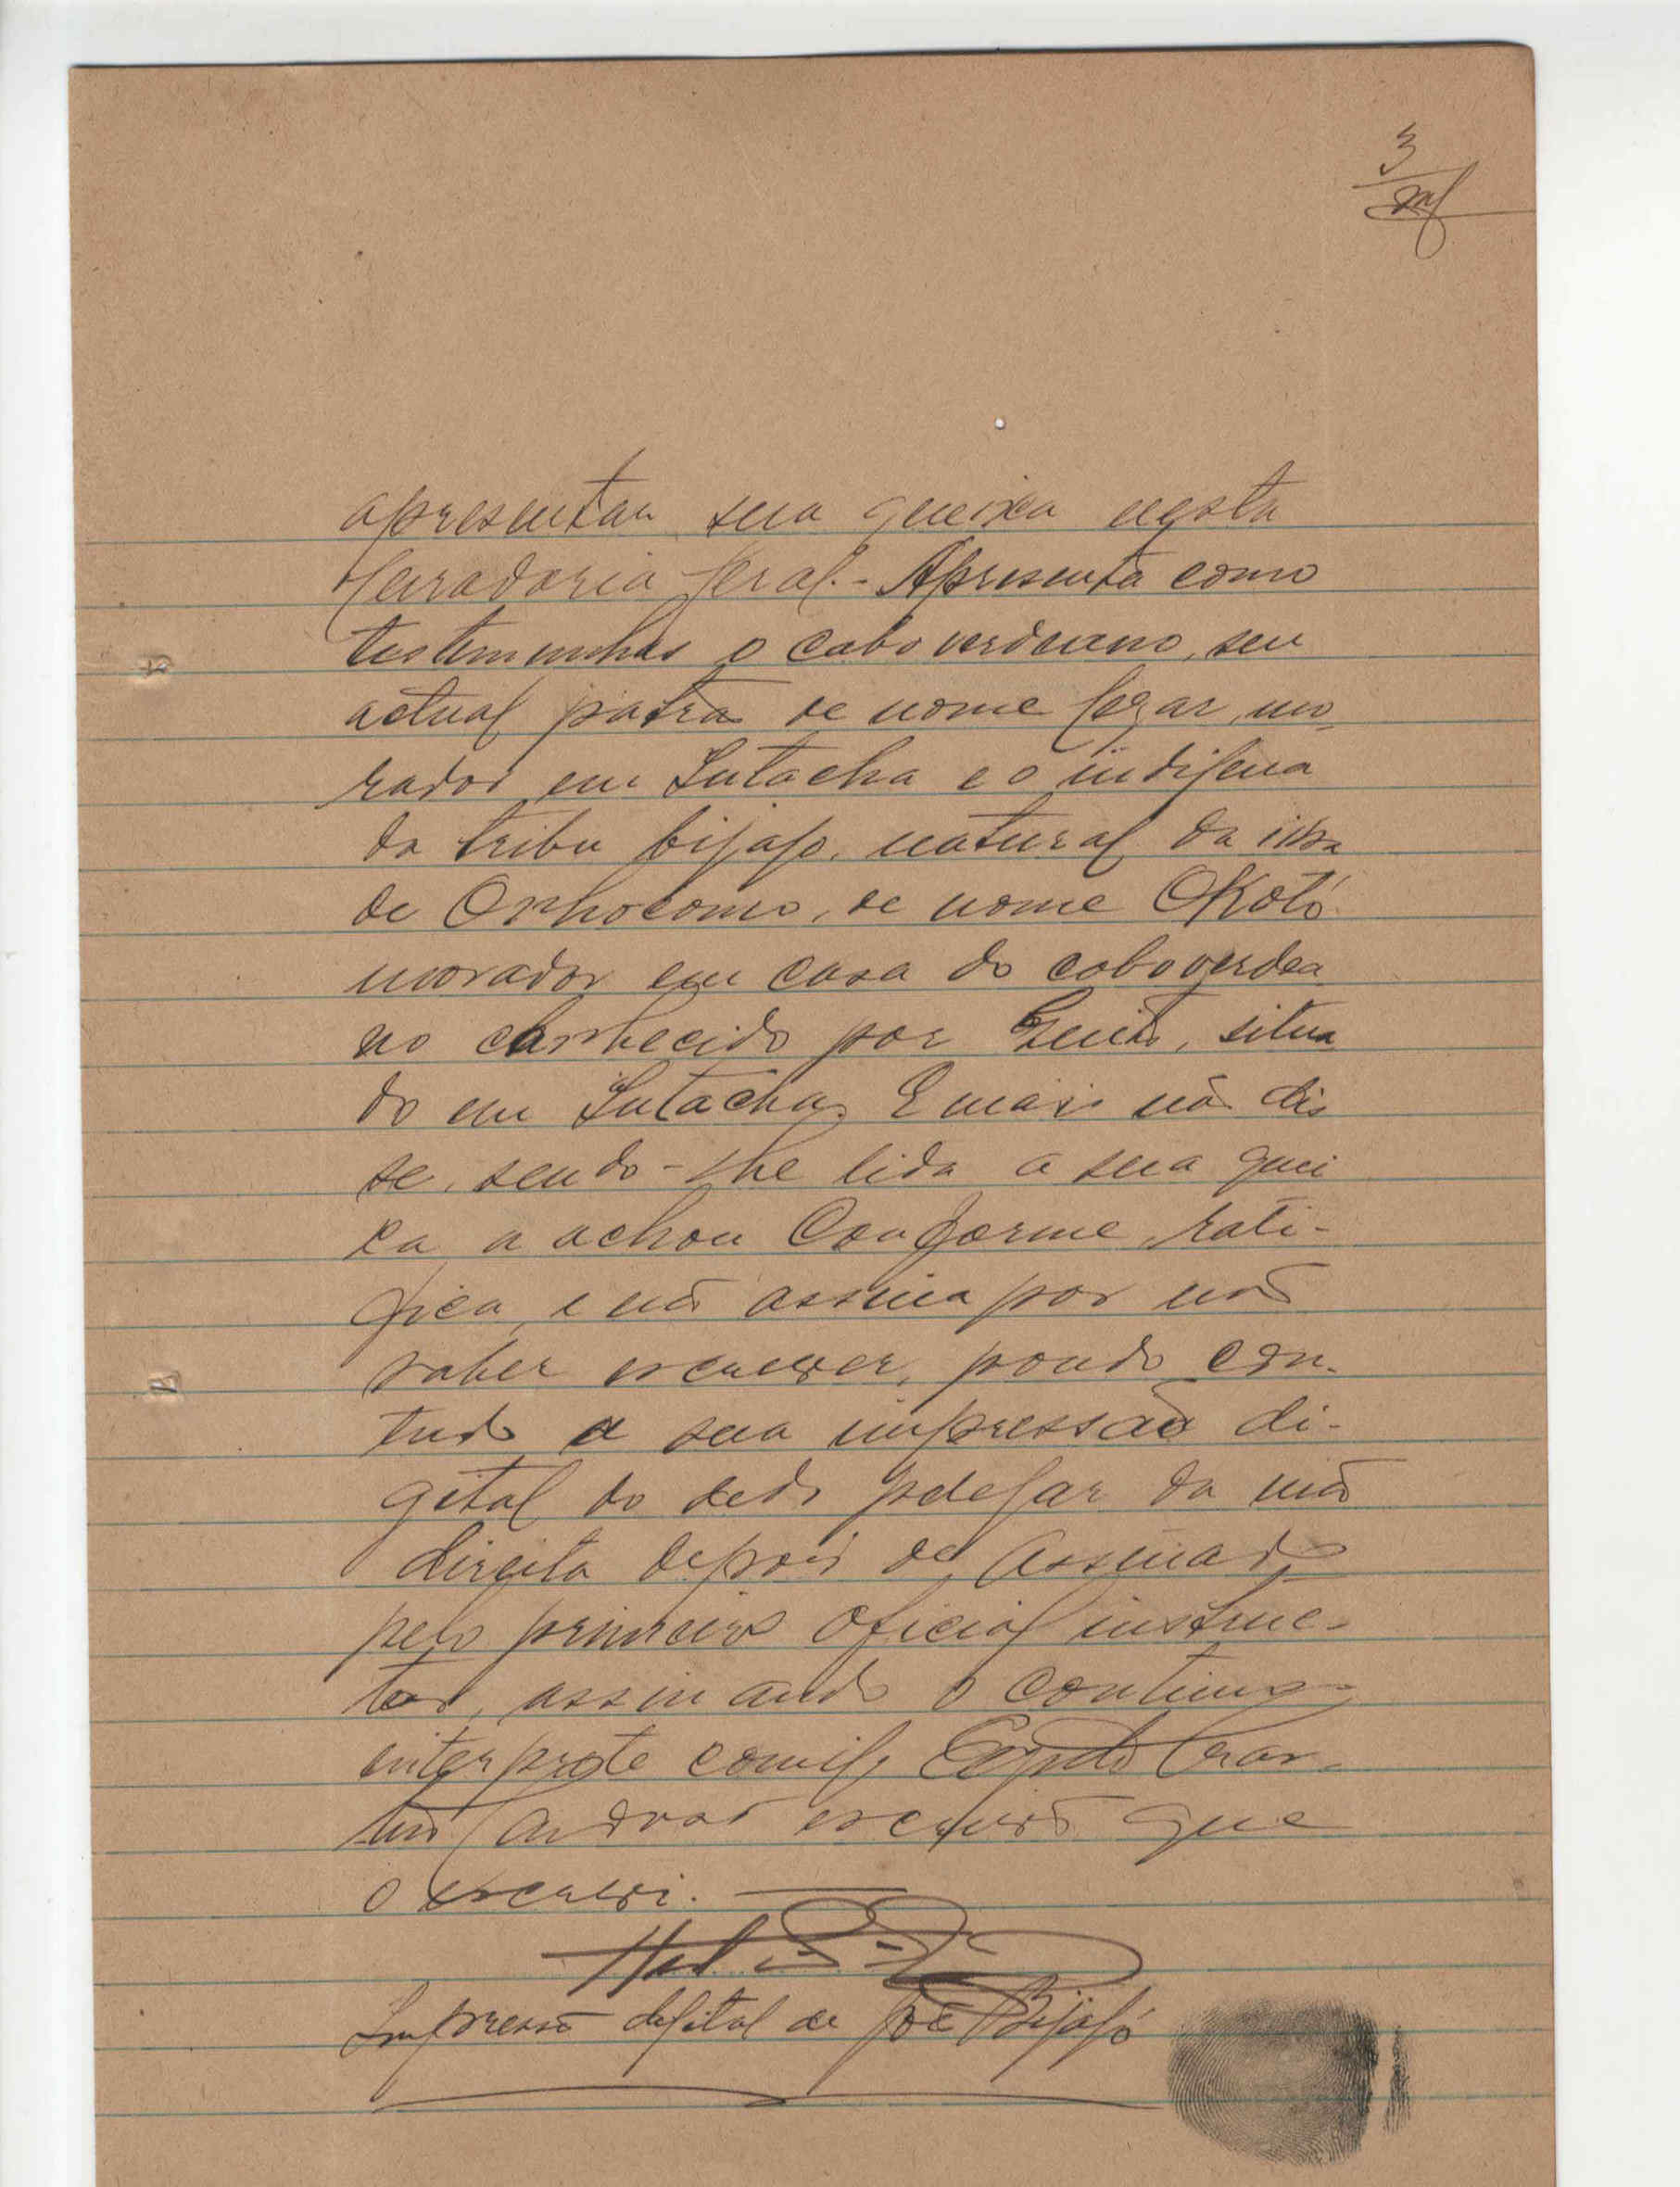 3
apresentar sua queixa nesta
Curadoria Geral.- Apresenta como
testemunhas o caboverdeano, seu
actual patrão de nome Cezar, mo-
rador em Intacha e o indigena
da tribu bijagó, natural da ilha
de Orhocomo, de nome Okotó
morador em casa do caboverdea
no conhecido por situa
do em Intacha. E mais não dis
se, sendo-lhe lida a sua quei
xa a achou conforme, rati-
fica, e não assina por não
saber escrever, pondo con-
tudo a sua impressão di-
gital do dedo polegar da mão
direita depois de assinado
pelo primeiro oficial instruc-
tor, assinando o continuo
interprete comigo
escrivão que
o escrevi.
Impressão digital de José Bijagó